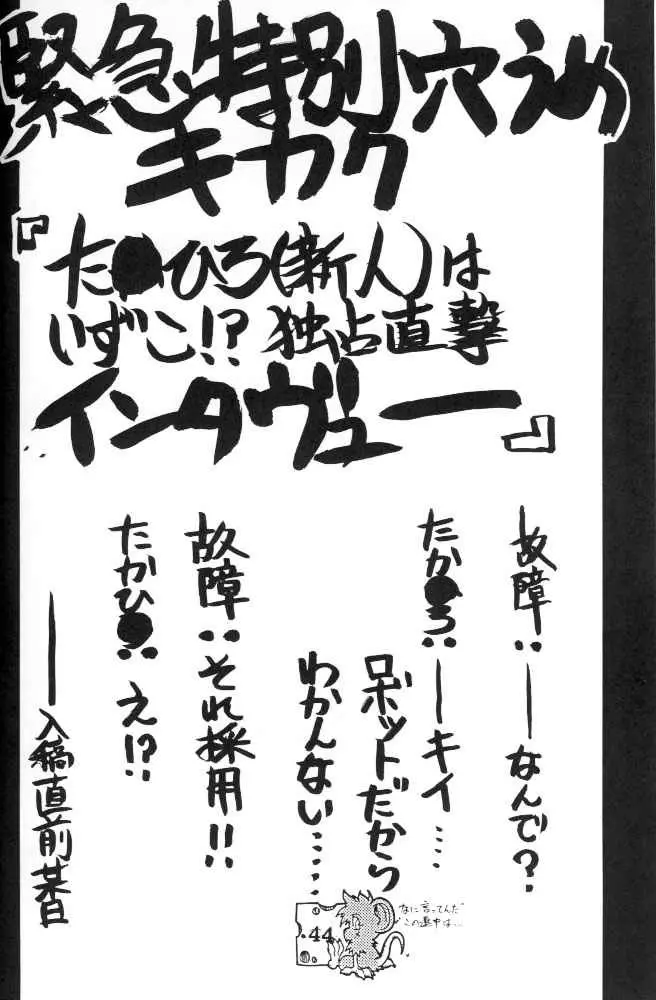 緊急特別穴うめ
キカク
『た●ひろ(新人)は
いずこ!? 独占直撃
インタヴュー』
―故障:―なんで?
たか●ろ:―キイ…
ロボットだから
わかんない……
故障:それ採用!!
たかひ●:え!?
――入稿直前某日
なに言ってんだ
この連中は…
.44